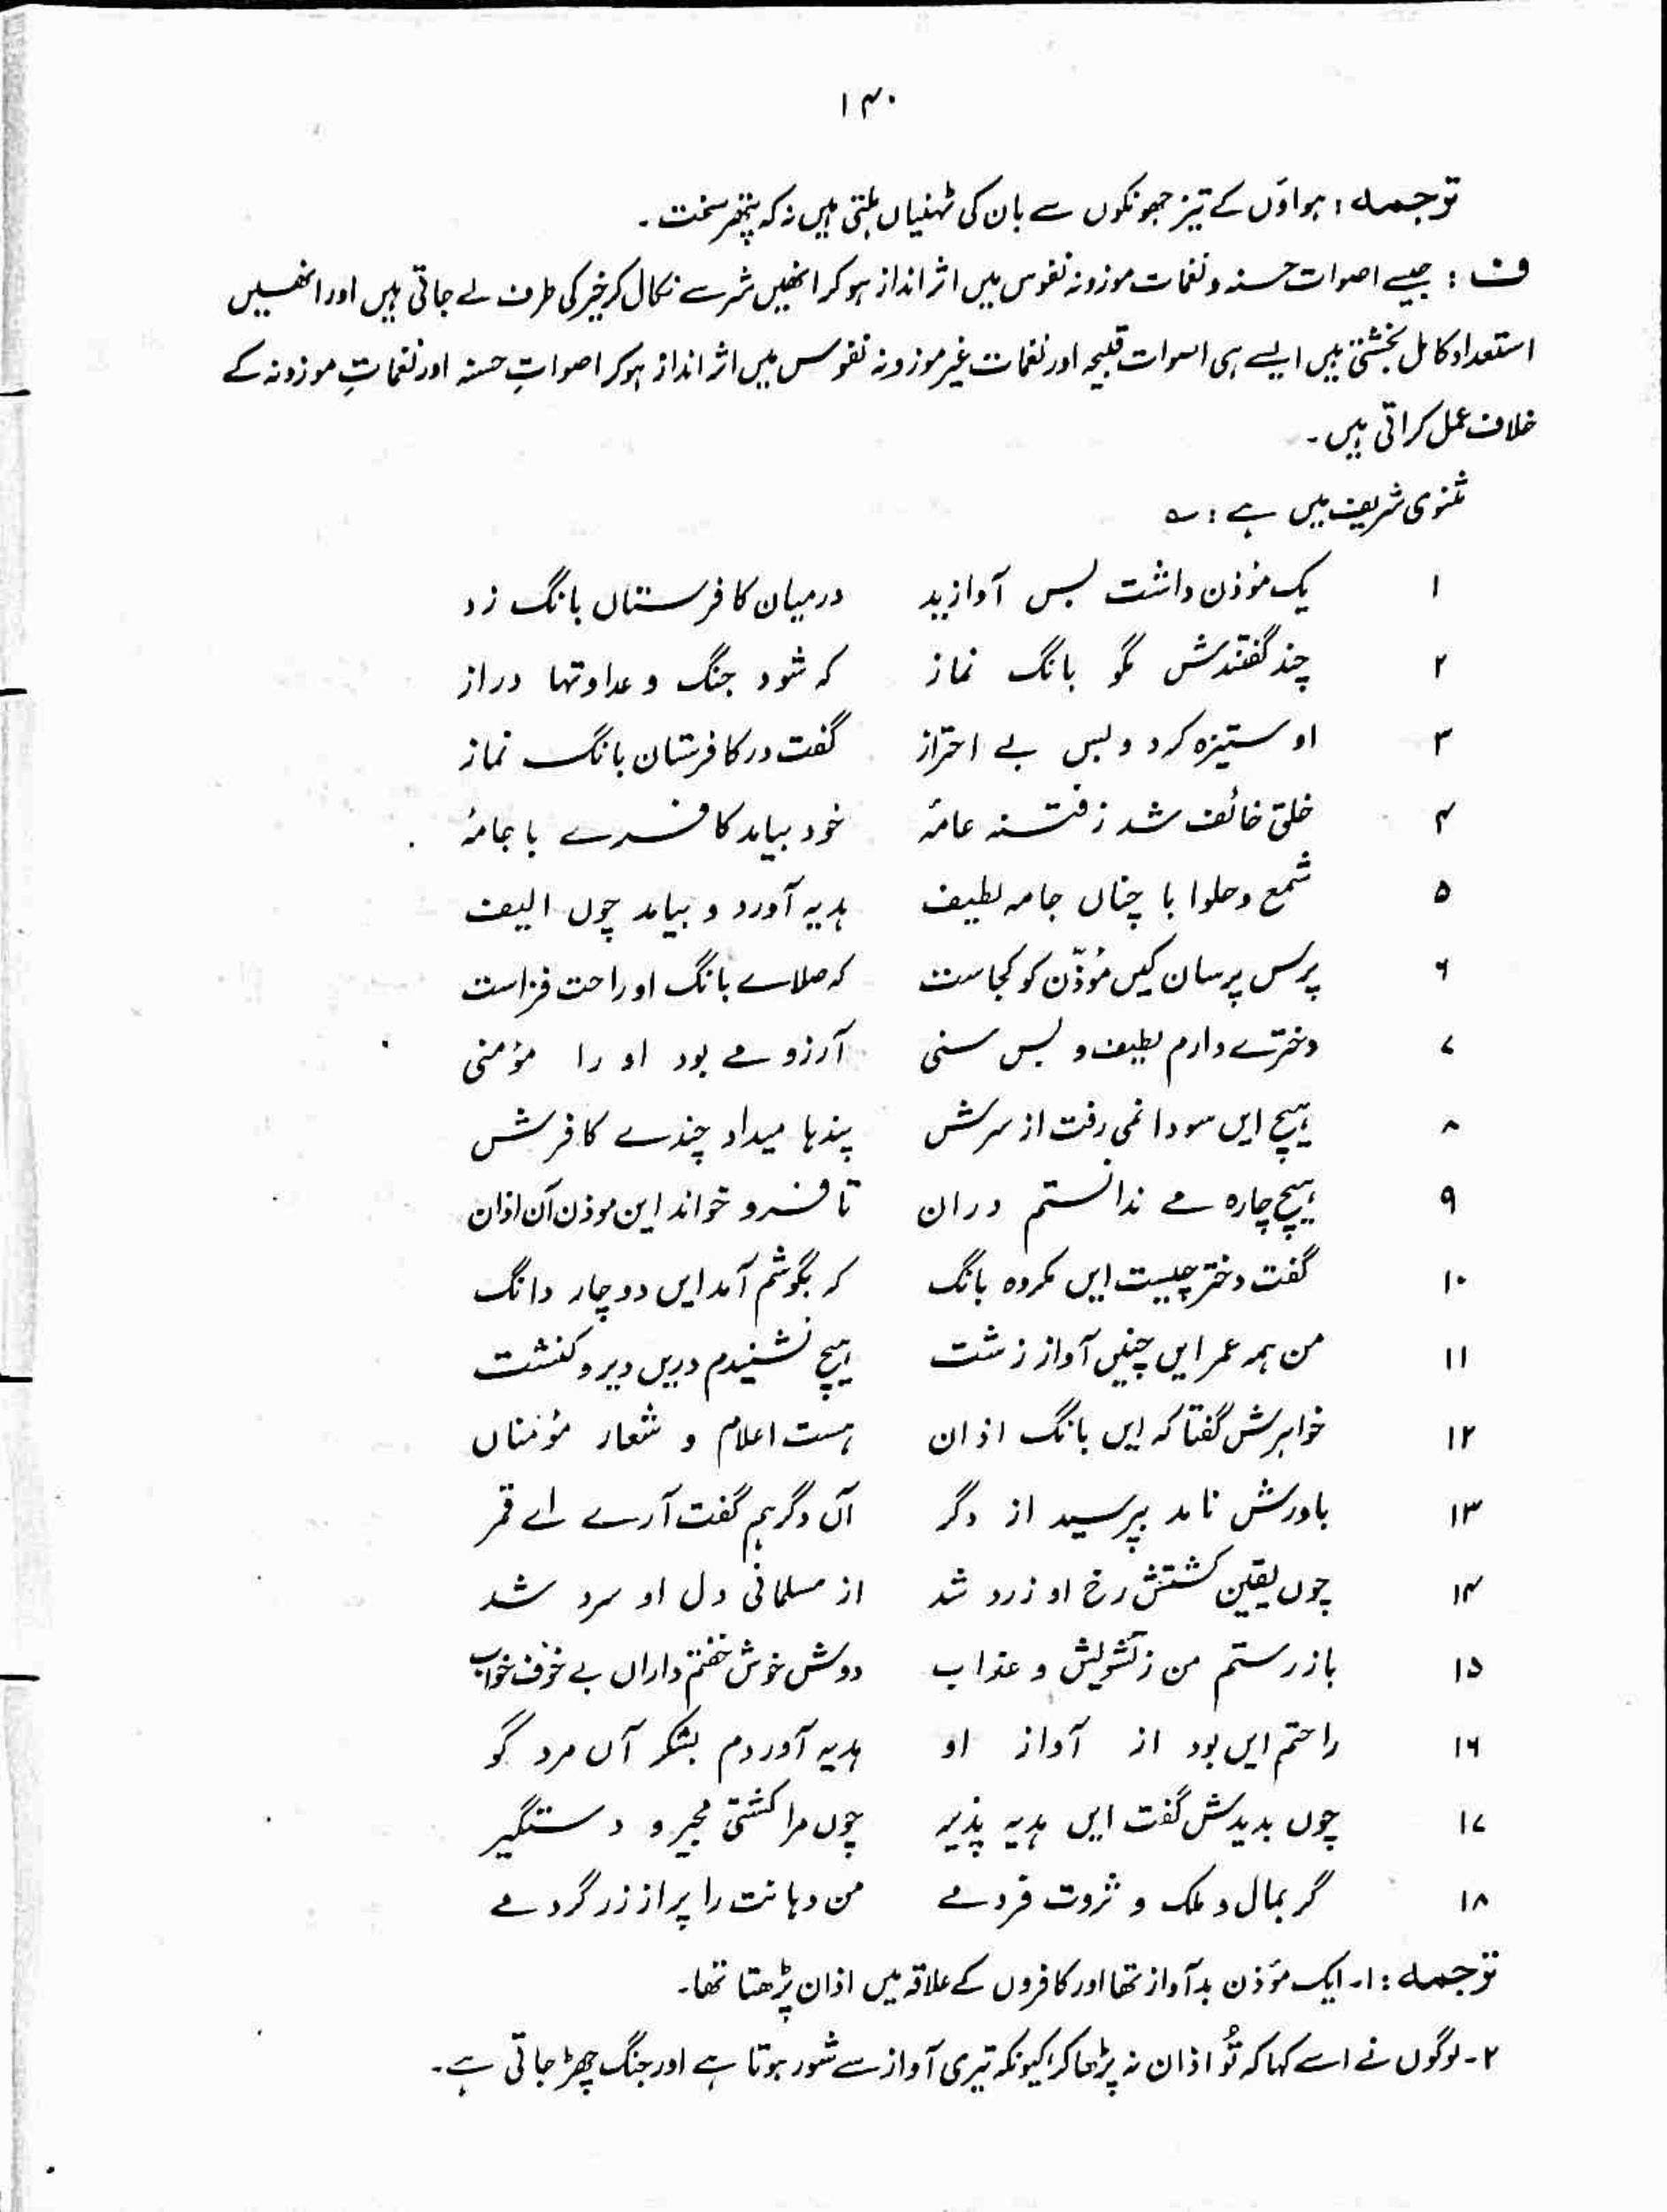 ۱۴۰
توجمہ: ہواؤں کے تیز جھونکوں سے بان کی ٹہنیاں ہلتی ہیں نہ کہ پتھر سخت۔
ف: جیسے اصوات حسنہ و نغمات موزونہ نفوس میں اثر انداز ہو کر انھیں شر سے نکال کر خیر کی طرف لے جاتی ہیں اور انھیں
استعداد کامل بخشتی ہیں ایسے ہی اصوات قبیحہ اور نغمات غیر موزونہ نفوس میں اثر انداز ہو کر اصواتِ حسنہ اور نغماتِ موزونہ کے
خلاف عمل کراتی ہیں۔
مثنوی شریف میں ہے: ؎
۱ یک مؤذن داشت بس آواز بد درمیان کافرستاں بانگ زد
۲ چند گفتندش مگو بانگ نماز کہ شود جنگ و عداوتہا دراز
۳ او ستیزہ کرد و بس بے احتراز گفت در کافرستان بانگ نماز
۴ خلق خائف شد ز فتنہ عامہٗ خود بیامد کافرے با جامہٗ
۵ شمع و حلوا با چناں جامہ لطیف ہدیہ آورد و بیامد چوں الیف
۶ پرس پرسان کیں مؤذّن کو کجاست کہ صلاے بانگ او راحت فزاست
۷ دخترے دارم لطیف و بس سنی آرزو مے بود او را مؤمنی
۸ ہیچ ایں سودا نمی رفت از سرش پندہا میداد چندے کافرش
۹ ہیچ چارہ مے ندانستم دران تا فرو خواند این موذن آن اذان
۱۰ گفت دختر چیست ایں مکروہ بانگ کہ بگوشم آمد ایں دو چار دانگ
۱۱ من ہمہ عمر ایں چنیں آواز زشت ہیچ نشنیدم دریں دیر و کنشت
۱۲ خواہرش گفتا کہ ایں بانگ اذان ہست اعلام و شعار مؤمناں
۱۳ باورش نامد بپرسید از دگر آں دگر ہم گفت آرے اے قمر
۱۴ چوں یقین گشتش رخ او زرد شد از مسلمانی دل او سرد شد
۱۵ باز رستم من ز تشویش و عذاب دوش خوش خفتم داراں بے خوف خواب
۱۶ راحتم ایں بود از آواز او ہدیہ آوردم بشکر آں مرد گو
۱۷ چوں بدیدش گفت ایں ہدیہ پذیر چوں مرا گشتی مجیر و دستگیر
۱۸ گر بمال و ملک و ثروت فردمے من دہانت را پر از زر گردمے
توجمہ: ۱۔ ایک مؤذن بد آواز تھا اور کافروں کے علاقہ میں اذان پڑھتا تھا۔
۲۔ لوگوں نے اسے کہا کہ تُو اذان نہ پڑھا کر کیونکہ تیری آواز سے شور ہوتا ہے اور جنگ چھڑ جاتی ہے۔